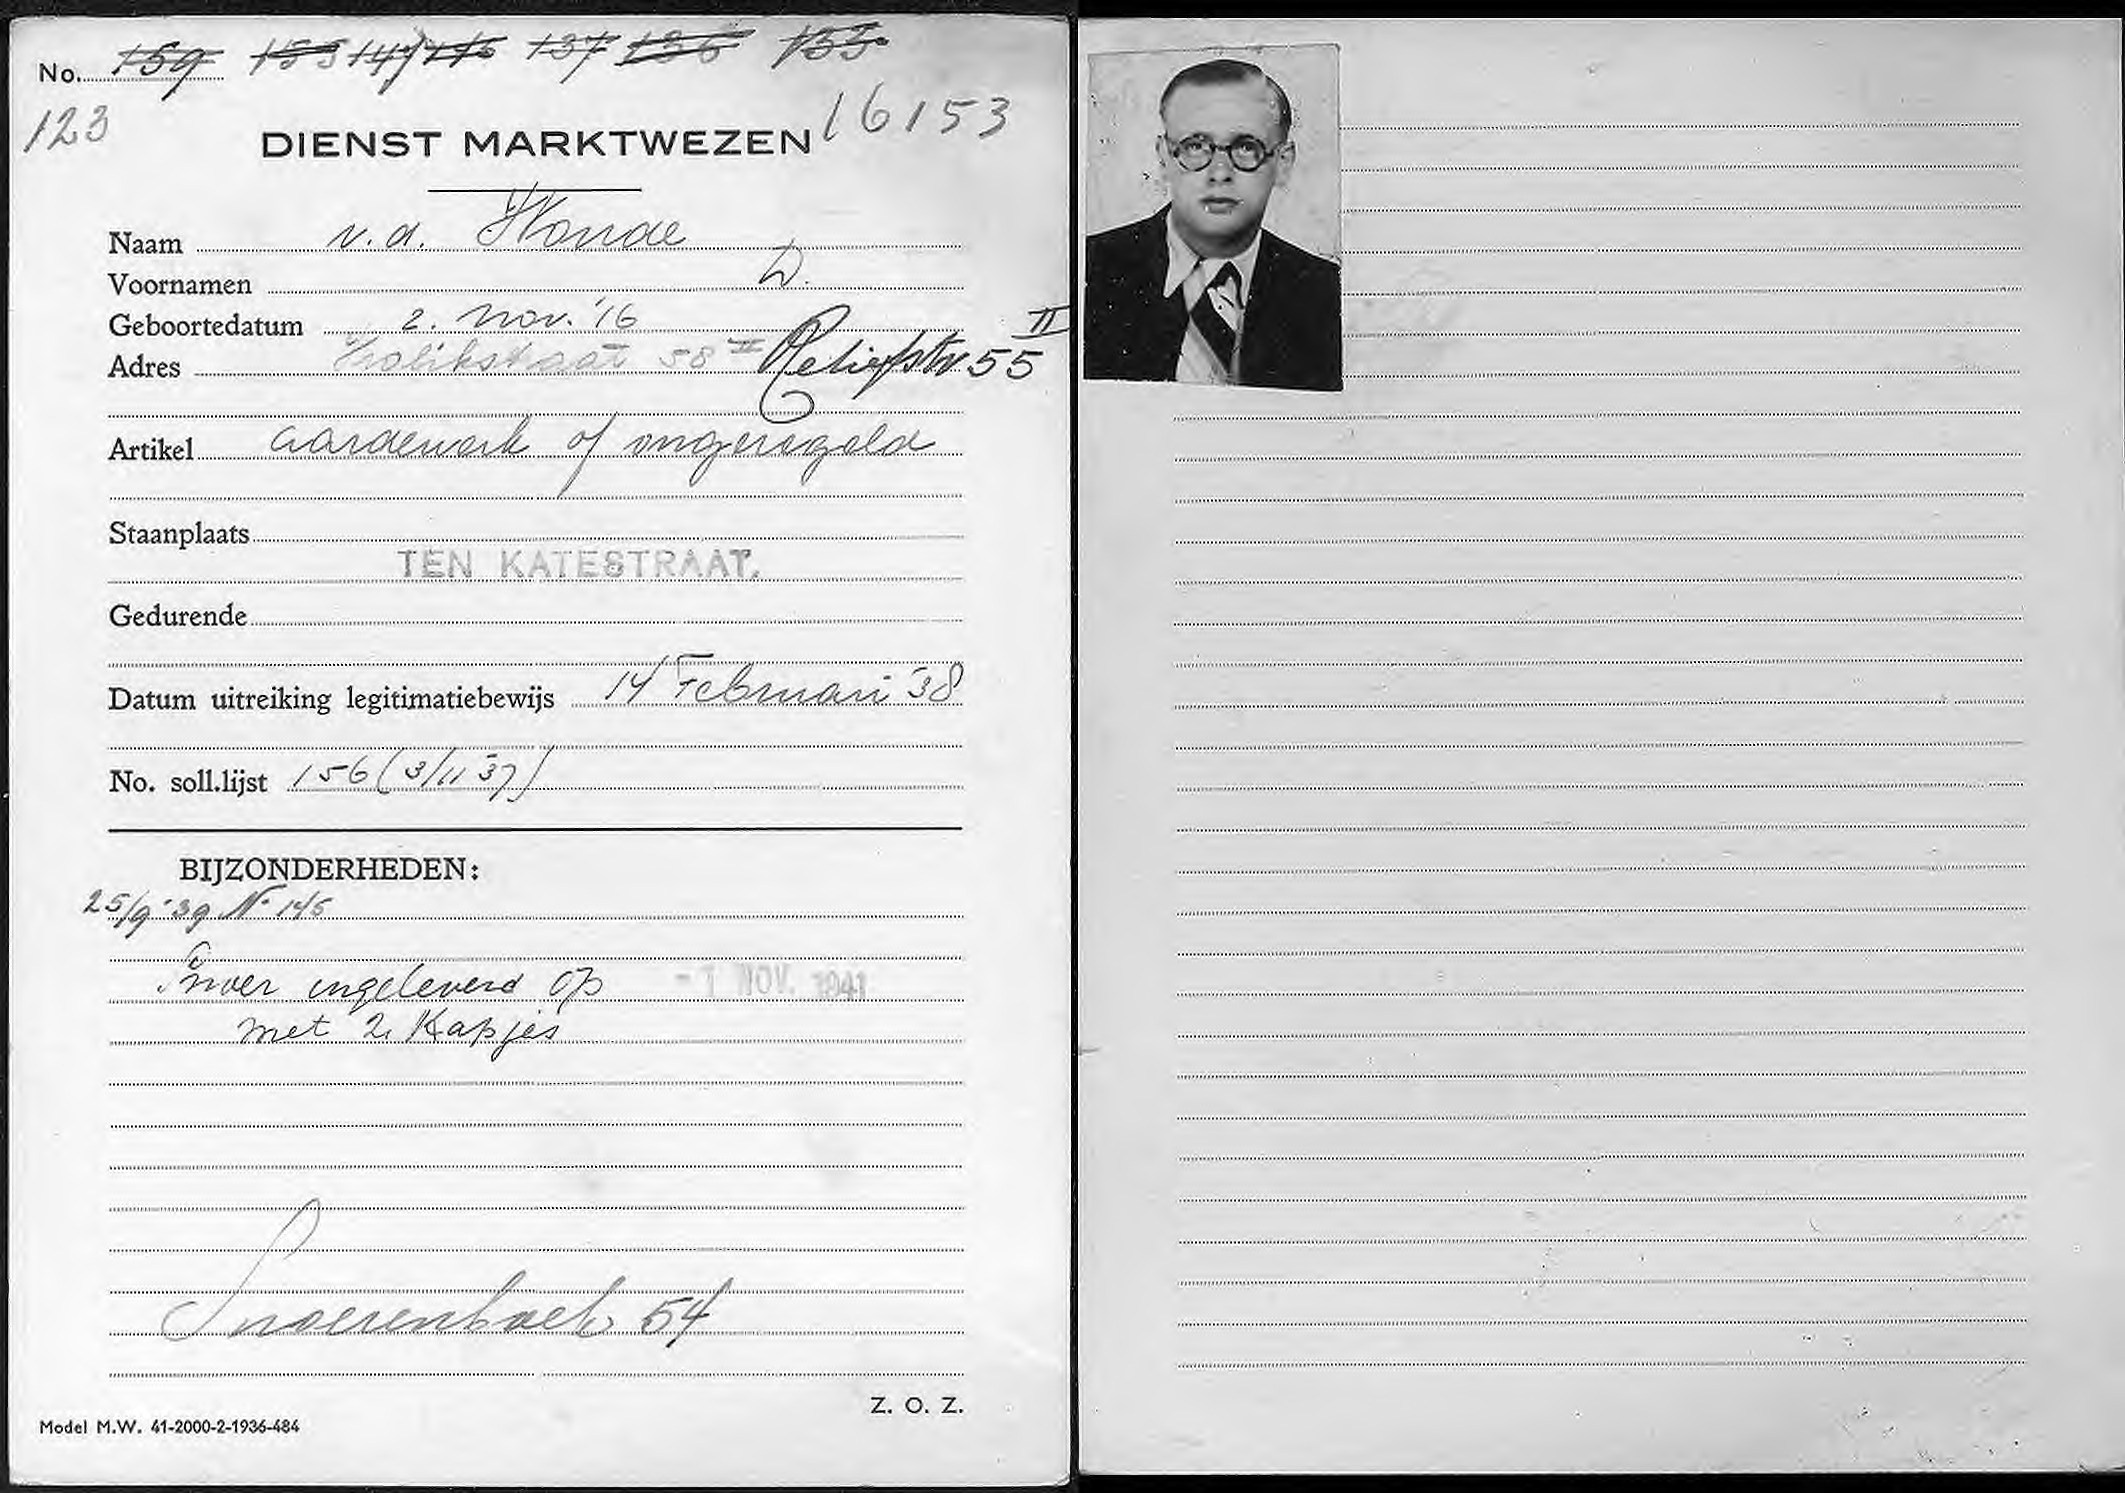 No. 159 153 147 146 137 136 133
123
16153
DIENST MARKTWEZEN
Naam v.d. Honde
Voornamen D.
Geboortedatum 2. Nov. '16
Adres 58 II Retiefstr 55 II
Artikel aardewerk of ongeregeld
Staanplaats
TEN KATESTRAAT.
Gedurende
Datum uitreiking legitimatiebewijs 14 Februari '38
No. soll.lijst 156 (3/11 37)
BIJZONDERHEDEN:
25/9 '39 N° 145
Snoer ingeleverd op - 1 NOV. 1941
met 2 Kapjes
Snoerenboek 54
Z. O. Z.
Model M.W. 41-2000-2-1936-484